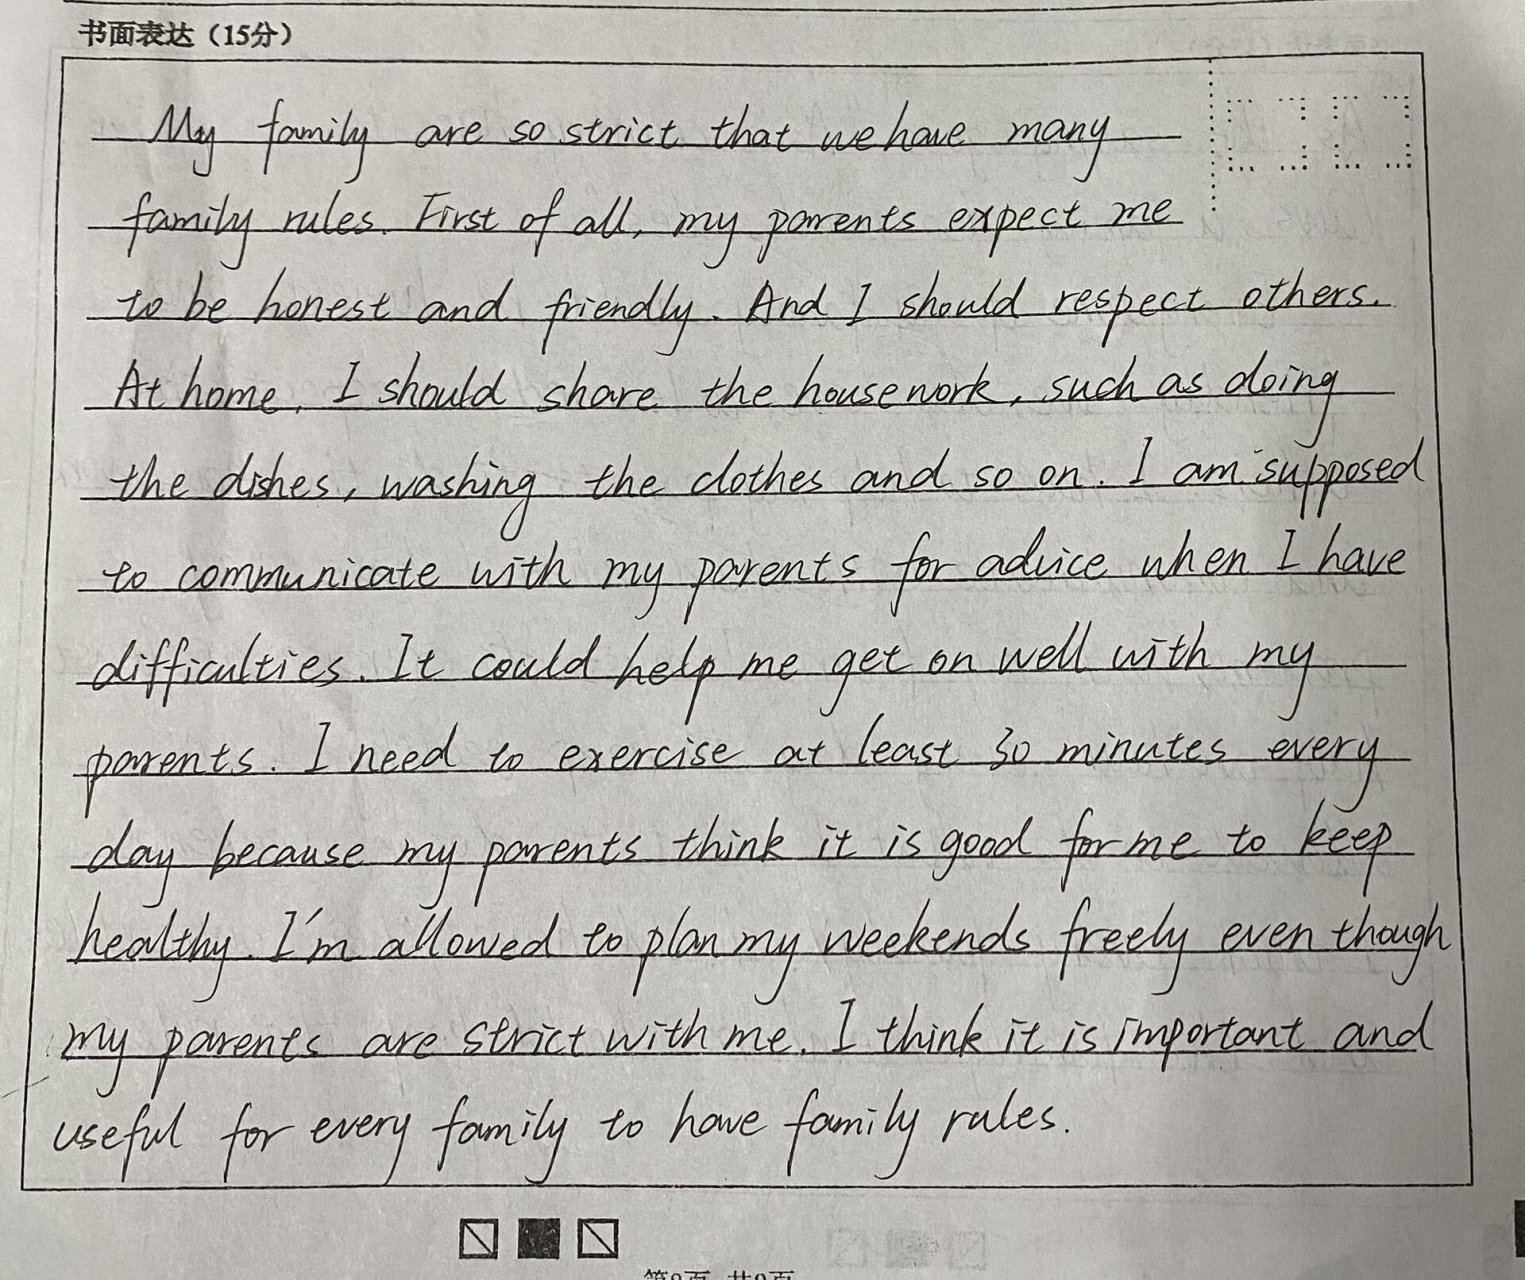 书面表达（15分）
My family are so strict that we have many
family rules. First of all, my parents expect me
to be honest and friendly. And I should respect others.
At home, I should share the housework, such as doing
the dishes, washing the clothes and so on. I am supposed
to communicate with my parents for advice when I have
difficulties. It could help me get on well with my
parents. I need to exercise at least 30 minutes every
day because my parents think it is good for me to keep
healthy. I'm allowed to plan my weekends freely even though
my parents are strict with me. I think it is important and
useful for every family to have family rules.